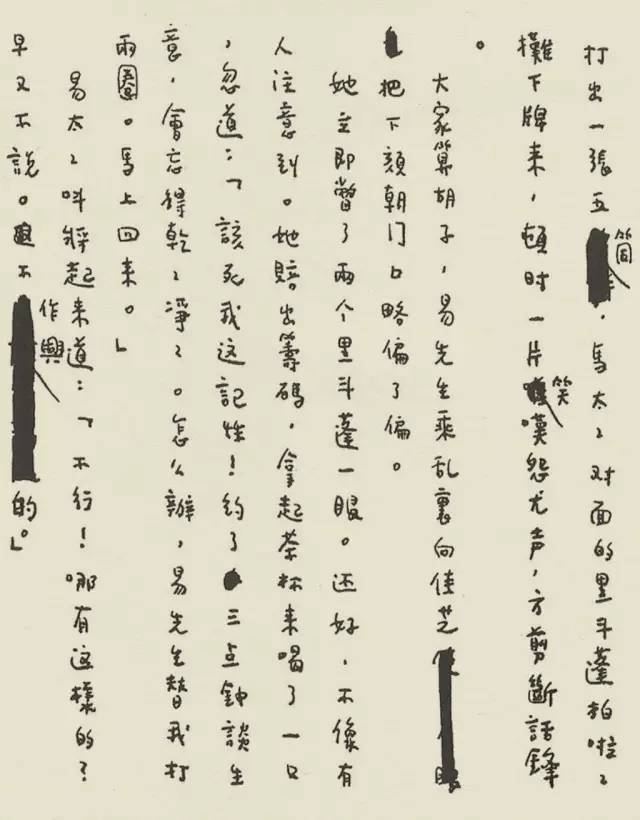 打出一張五筒,馬太々对面的黑斗蓬拍啦々
攤下牌来,頓时一片笑嘆怨尤声,方剪斷話鋒
。
大家算胡子,易先生乘乱裏向佳芝
把下頦朝门口略偏了偏。
她立即瞥了兩个黑斗蓬一眼。还好,不像有
人注意到。她賠出籌碼,拿起茶杯来喝了一口
,忽道:「該死我这記性!约了三点鐘談生
意,會忘得乾々凈々。怎么辦,易先生替我打
兩圈。馬上回来。」
易太々叫將起来道:「不行!哪有这樣的?
早又不說。不作興的。」